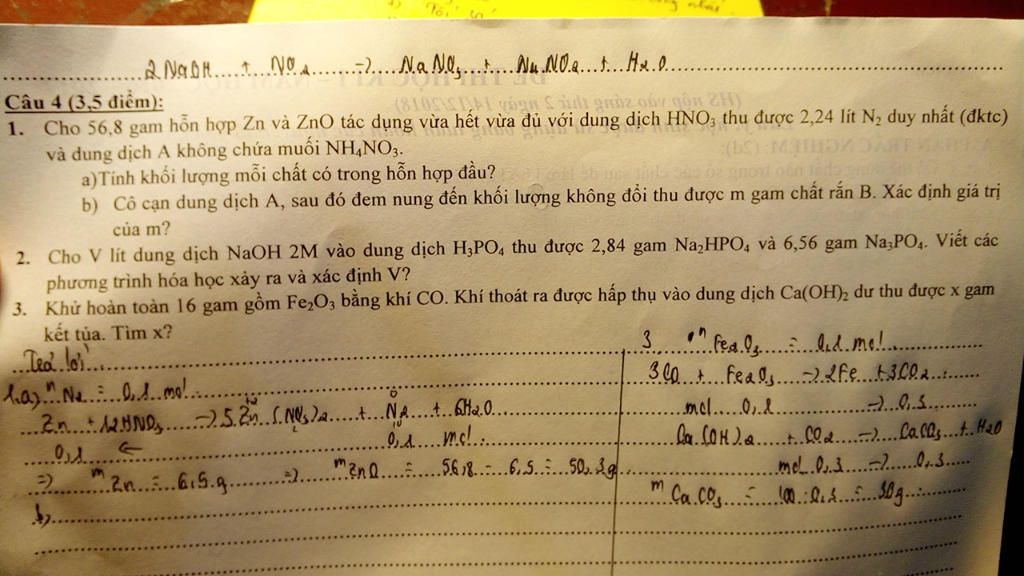 2NaOH + NO2 -> NaNO3 + NaNO2 + H2O
Câu 4 (3,5 điểm):
1. Cho 56,8 gam hỗn hợp Zn và ZnO tác dụng vừa hết vừa đủ với dung dịch HNO3 thu được 2,24 lít N2 duy nhất (đktc)
và dung dịch A không chứa muối NH4NO3.
a)Tính khối lượng mỗi chất có trong hỗn hợp đầu?
b) Cô cạn dung dịch A, sau đó đem nung đến khối lượng không đổi thu được m gam chất rắn B. Xác định giá trị
của m?
2. Cho V lít dung dịch NaOH 2M vào dung dịch H3PO4 thu được 2,84 gam Na2HPO4 và 6,56 gam Na3PO4. Viết các
phương trình hóa học xảy ra và xác định V?
3. Khử hoàn toàn 16 gam gồm Fe2O3 bằng khí CO. Khí thoát ra được hấp thụ vào dung dịch Ca(OH)2 dư thu được x gam
kết tủa. Tìm x?
Trả lời
1.a) nN2 = 0,1 mol
Zn + 12HNO3 -> 5Zn(NO3)2 + N2 + 6H2O
0,1 <- 0,1 mol
=> mZn = 6,5g => mZnO = 56,8 - 6,5 = 50,3g
b)
3 nFe2O3 = 0,1 mol
3CO + Fe2O3 -> 2Fe + 3CO2
mol 0,1 -> 0,3
Ca(OH)2 + CO2 -> CaCO3 + H2O
mol 0,3 -> 0,3
mCaCO3 = 100.0,3 = 30g